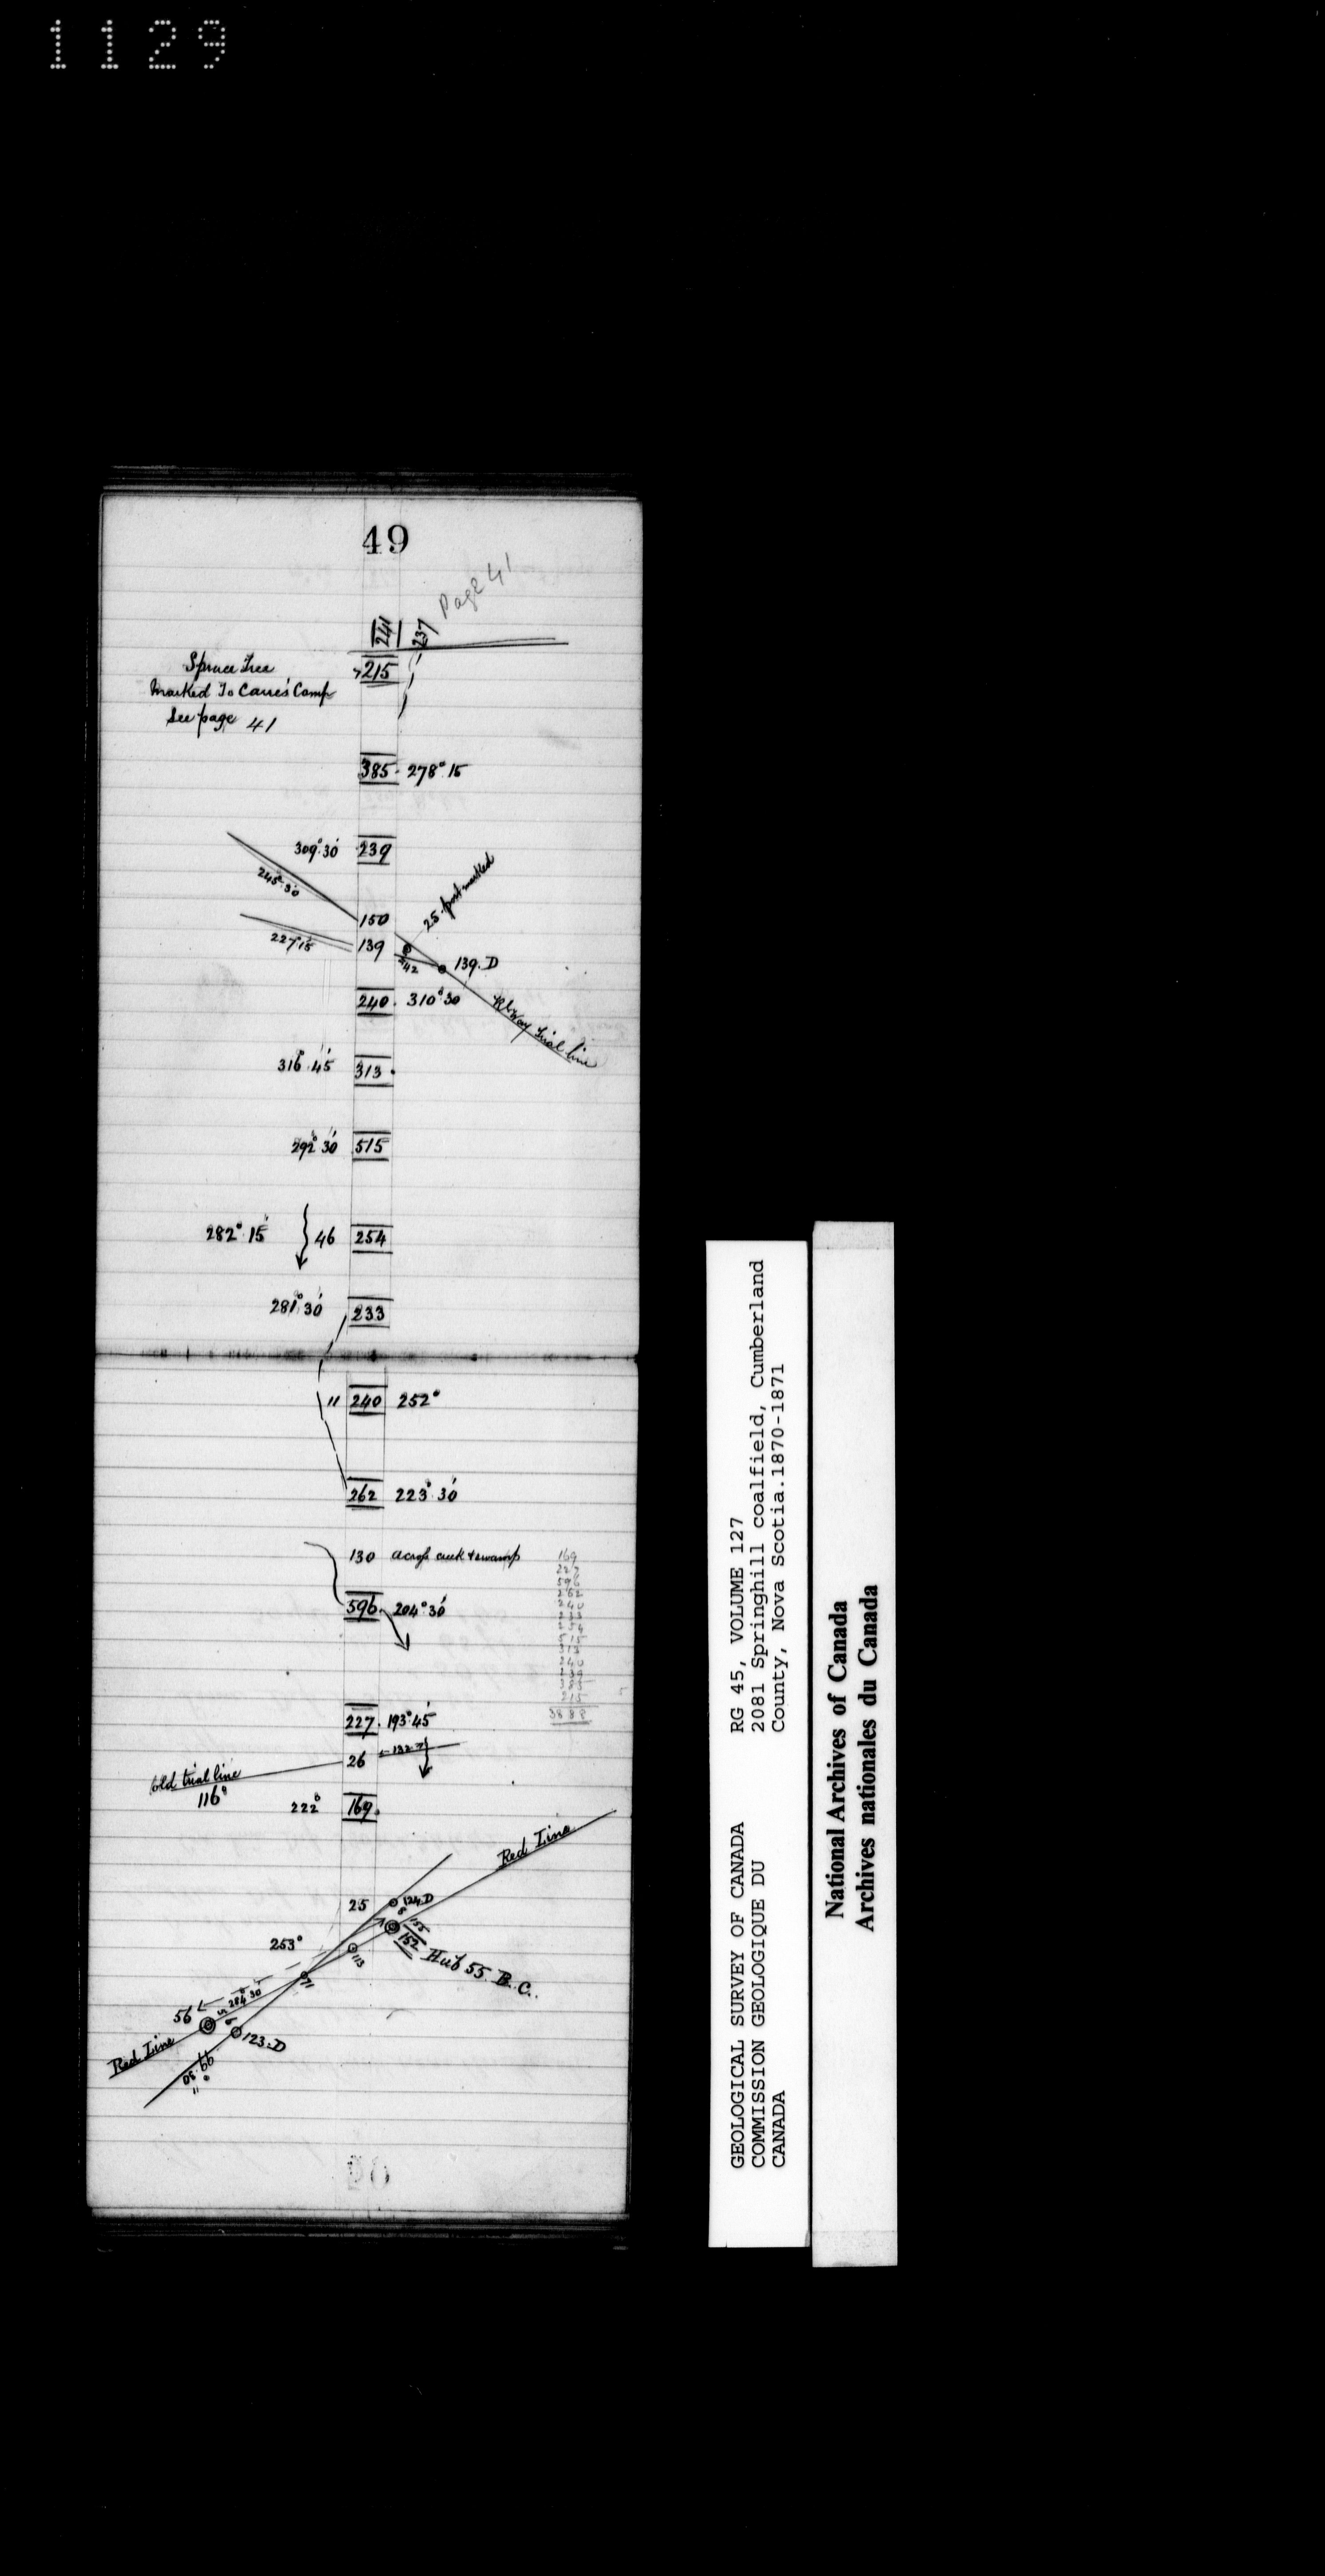 1129
49
Page 41
241 237
215
Spruce Tree
Marked To Carre's Camp
See page 41
385 278° 15
309° 30' 239
245° 30
150
25 post marked
227 15
139
242
139. D
240 310° 30
Rlway trial line
316° 45' 313
292° 30' 515
282° 15' 46 254
281° 30' 233
11 240 252°
262 223° 30'
130 across creek & swamp
596 204° 30'
227 193° 45'
26 132
Old trial line
116°
222° 169
169
227
596
262
240
233
254
515
313
240
239
385
215
3888
Red Line
25 124.D
8
155
152
Hub 55. B.C.
253°
113
71
284° 30'
56
6
123.D
Red Line
99° 30
GEOLOGICAL SURVEY OF CANADA
COMMISSION GEOLOGIQUE DU
CANADA
RG 45, VOLUME 127
2081 Springhill coalfield, Cumberland
County, Nova Scotia.1870-1871
National Archives of Canada
Archives nationales du Canada